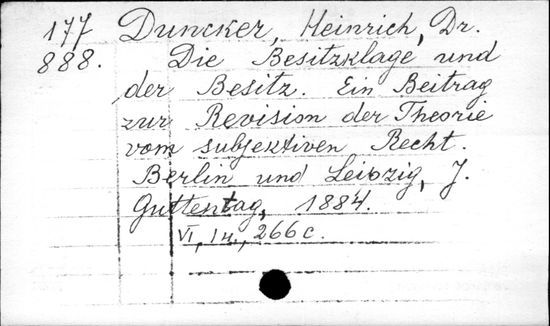 177 Duncker, Heinrich, Dr.
888. Die Besitzklage und
der Besitz. Ein Beitrag
zur Revision der Theorie
vom subjektiven Recht.
Berlin und Leipzig, J.
Guttentag, 1884.
VI, 1 н., 266 c.